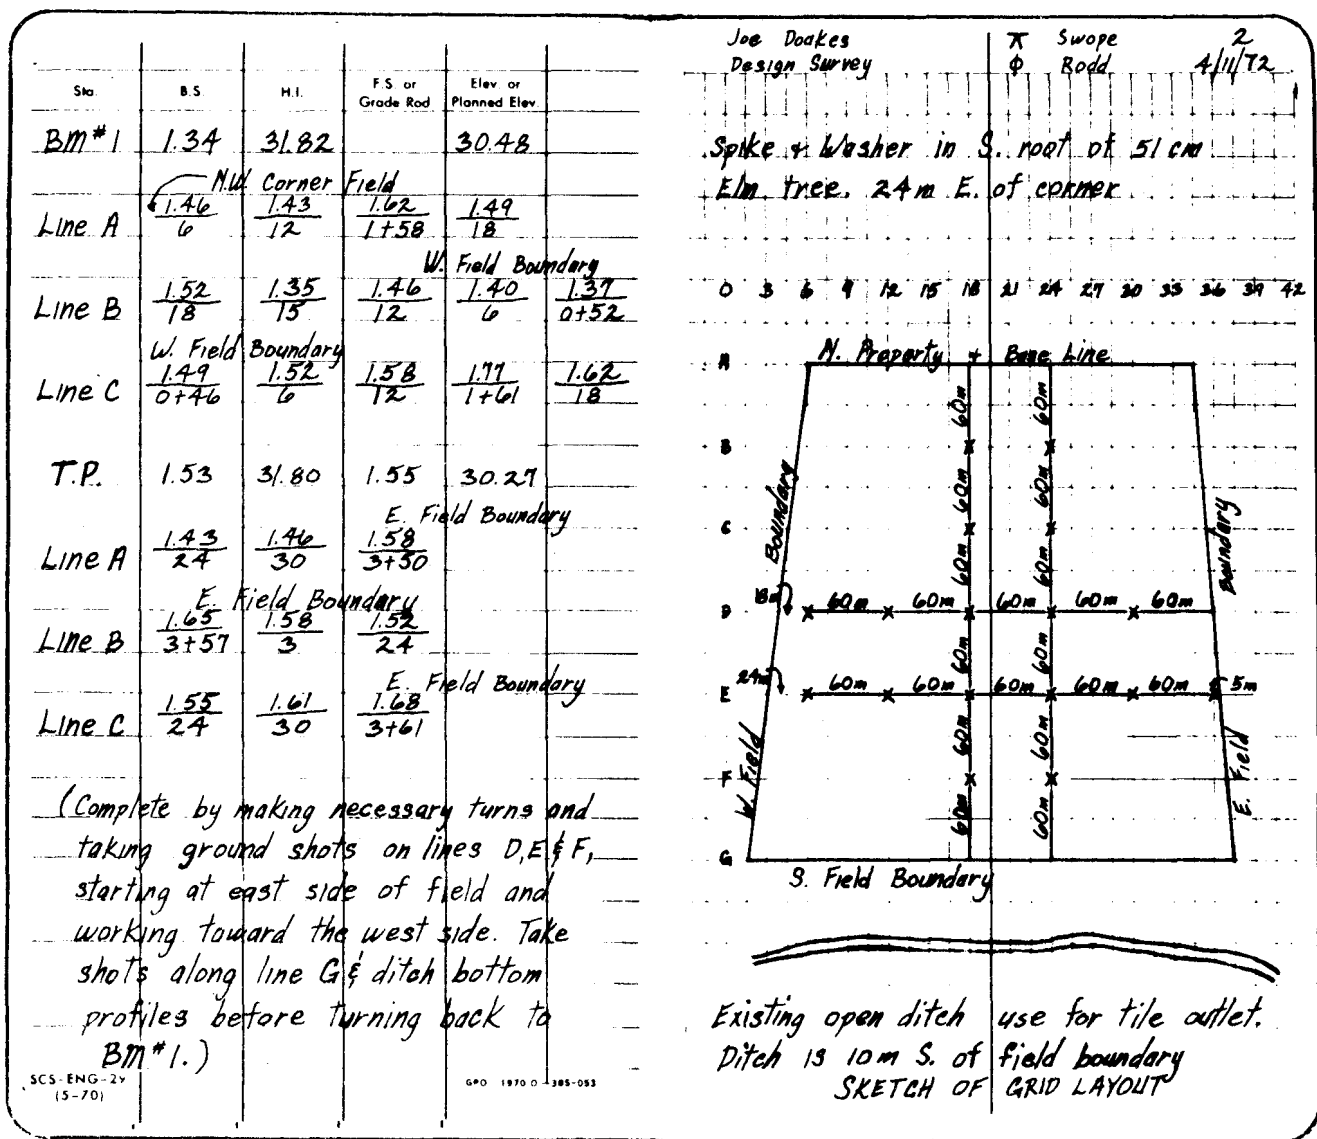 Sta. B.S. H.I. F.S. or Grade Rod Elev. or Planned Elev.
BM#1 1.34 31.82 30.48
N.W. Corner Field
Line A 1.46/6 1.43/12 1.62/1+58 1.49/18
W. Field Boundary
Line B 1.52/18 1.35/15 1.46/12 1.40/6 1.37/0+52
W. Field Boundary
Line C 1.49/0+46 1.52/6 1.58/12 1.77/1+61 1.62/18
T.P. 1.53 31.80 1.55 30.27
E. Field Boundary
Line A 1.43/24 1.46/30 1.58/3+50
E. Field Boundary
Line B 1.65/3+57 1.58/3 1.52/24
E. Field Boundary
Line C 1.55/24 1.61/30 1.68/3+61
(Complete by making necessary turns and
taking ground shots on lines D,E & F,
starting at east side of field and
working toward the west side. Take
shots along line G & ditch bottom
profiles before turning back to
BM#1.)
SCS-ENG-29
(5-70)
GPO 1970 O-385-053
Joe Doakes
Design Survey
⊼ Swope
ϕ Rodd
2
4/11/72
Spike & Washer in S. root of 51 cm
Elm tree. 24m E. of corner
0 3 6 9 12 15 18 21 24 27 30 33 36 39 42
A N. Property & Base Line
60m 60m
B
60m 60m
C
60m 60m
W. Field Boundary
E. Field Boundary
D 18m 60m 60m 60m 60m 60m
60m 60m
E 24m 60m 60m 60m 60m 60m 5m
60m 60m
F
60m 60m
G
S. Field Boundary
Existing open ditch use for tile outlet.
Ditch is 10m S. of field boundary
SKETCH OF GRID LAYOUT